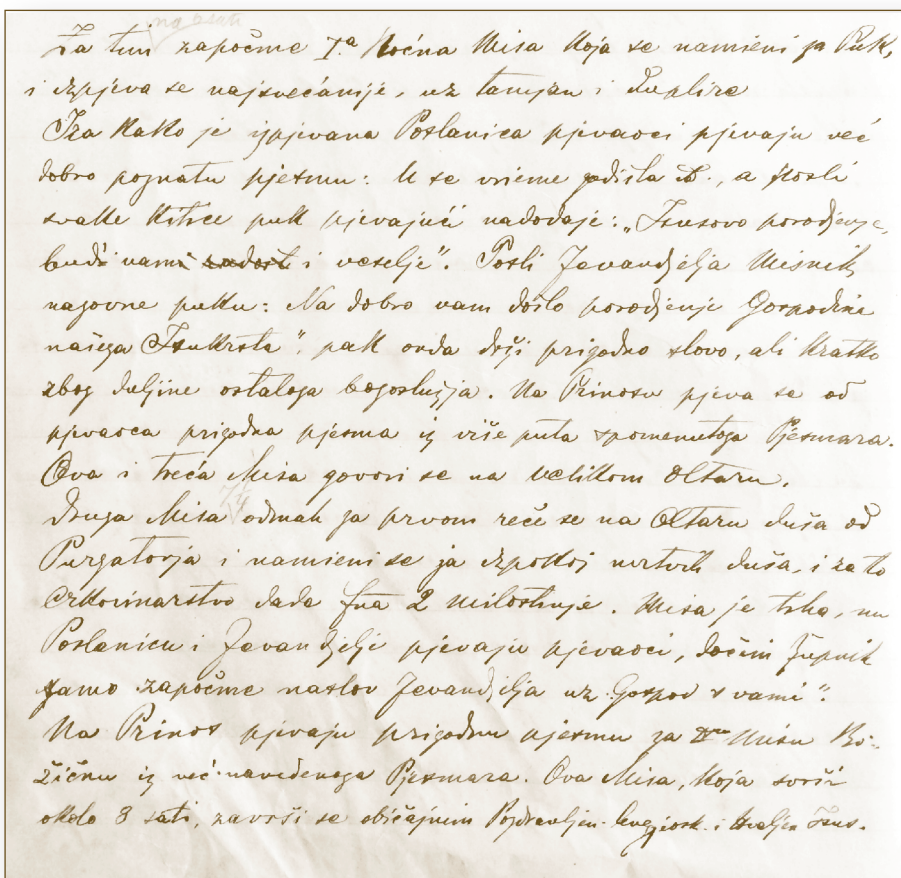 Za tim započme I.ª Noćna Misa koja se namieni za Puk,
i izpjeva se najsvećanije, uz tamjan i duplire
Iza kako je izpjevana Poslanica pjevaoci pjevaju već
dobro poznatu pjesmu: U se vrieme godišta &., a posli
svake kitice puk pjevajući nadodaje: „Isusovo porodjenje,
budi vami i veselje". Posli Jevandjelja Misnik
nazovne puku: Na dobro vam došlo porodjenje Gospodina
našega Isukrsta", pak onda drži prigodno slovo, ali kratko
zbog duljine ostaloga bogoslužja. Na Prinosu pjeva se od
pjevaoca prigodna pjesma iz više puta spomenutoga Pjesmara.
Ova i treća Misa govori se na velikom Oltaru.
Druga Misa odmah za prvom reče se na Oltaru duša od
Purgatorja i namieni se za izpokoj mrtvih duša, i za to
crkovinarstvo dada fna 2 milostinje. Misa je tiha, nu
Poslanicu i Jevandjelje pjevaju pjevaoci, dočim župnik
samo započme naslov Jevandjelja uz „Gospod s vami".
Na Prinos pjevaju prigodnu pjesmu za Misu Bo-
žićnu iz već navedenoga Pjesmara. Ova Misa, koja svrši
okolo 3 sati, završi se običajnim Pozdravljen i Hvaljen Isus.